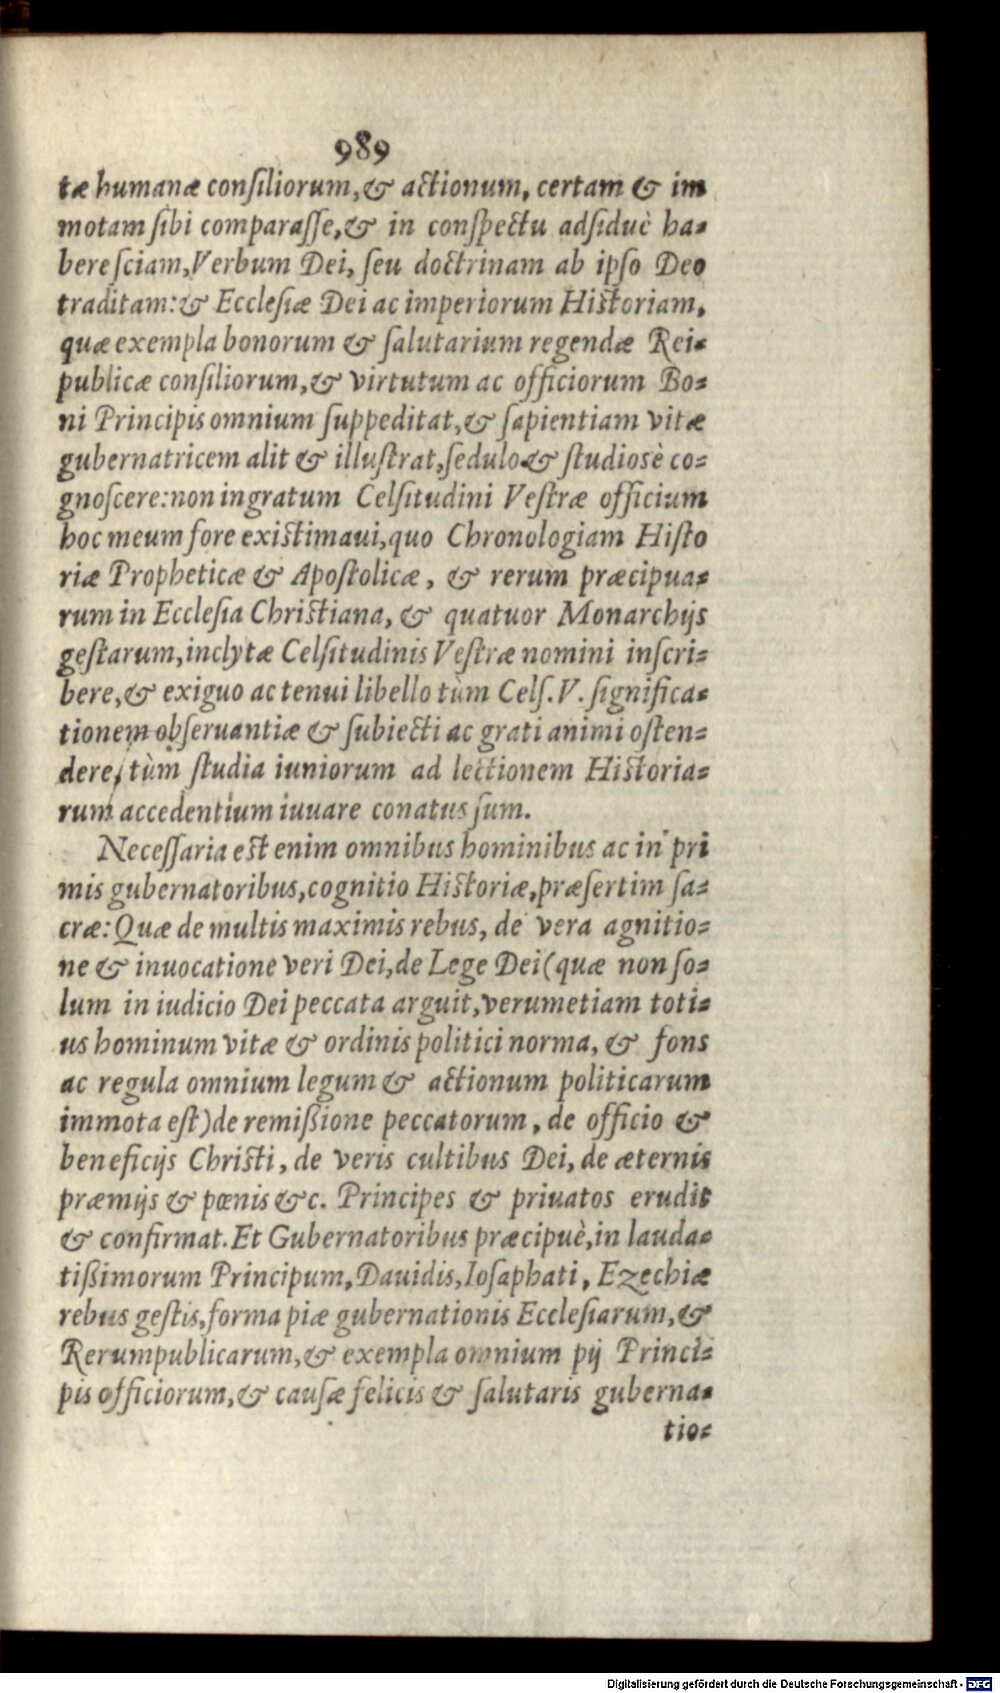 989
tæ humanæ conſiliorum,& actionum, certam & im
motam ſibi comparaſſe,& in conſpectu adſiduè ha=
bere ſciam,Verbum Dei, ſeu doctrinam ab ipſo Deo
traditam:& Eccleſiæ Dei ac imperiorum Hiſtoriam,
quæ exempla bonorum & ſalutarium regendæ Rei=
publicæ conſiliorum,& virtutum ac officiorum Bo=
ni Principis omnium ſuppeditat,& ſapientiam vitæ
gubernatricem alit & illuſtrat,ſedulo & ſtudioſè co=
gnoſcere:non ingratum Celſitudini Veſtræ officium
hoc meum fore exiſtimaui,quo Chronologiam Hiſto
riæ Propheticæ & Apoſtolicæ, & rerum præcipua=
rum in Eccleſia Chriſtiana, & quatuor Monarchijs
geſtarum,inclytæ Celſitudinis Veſtræ nomini inſcri=
bere,& exiguo ac tenui libello tùm Celſ.V. ſignifica=
tionem obſeruantiæ & ſubiecti ac grati animi oſten=
dere, tùm ſtudia iuniorum ad lectionem Hiſtoria=
rum accedentium iuuare conatus ſum.
Neceſſaria eſt enim omnibus hominibus ac in pri
mis gubernatoribus,cognitio Hiſtoriæ,præſertim ſa=
cræ: Quæ de multis maximis rebus, de vera agnitio=
ne & inuocatione veri Dei,de Lege Dei(quæ non ſo=
lum in iudicio Dei peccata arguit,verumetiam toti=
us hominum vitæ & ordinis politici norma, & fons
ac regula omnium legum & actionum politicarum
immota eſt)de remiſsione peccatorum, de officio &
beneficijs Chriſti, de veris cultibus Dei, de æternis
præmijs & pœnis &c. Principes & priuatos erudit
& confirmat. Et Gubernatoribus præcipuè,in lauda=
tiſsimorum Principum,Dauidis,Ioſaphati, Ezechiæ
rebus geſtis,forma piæ gubernationis Eccleſiarum,&
Rerumpublicarum,& exempla omnium pij Princi=
pis officiorum,& cauſæ felicis & ſalutaris guberna=
tio=
Digitalisierung gefördert durch die Deutsche Forschungsgemeinschaft - DFG